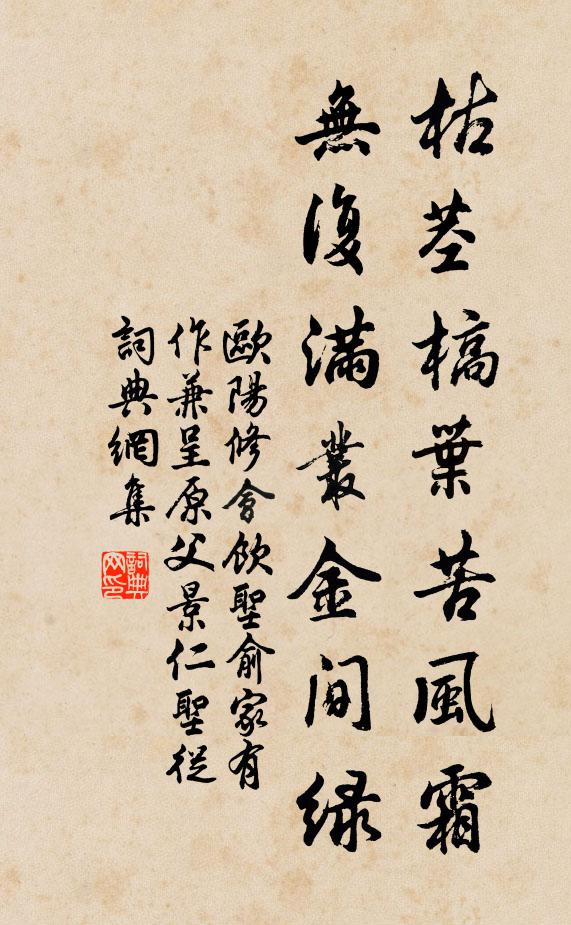 枯莖槁葉苦風霜
無復滿叢金間綠
歐陽修會飲聖俞家有
作兼呈原父景仁聖從
詞典網集
詞典网印